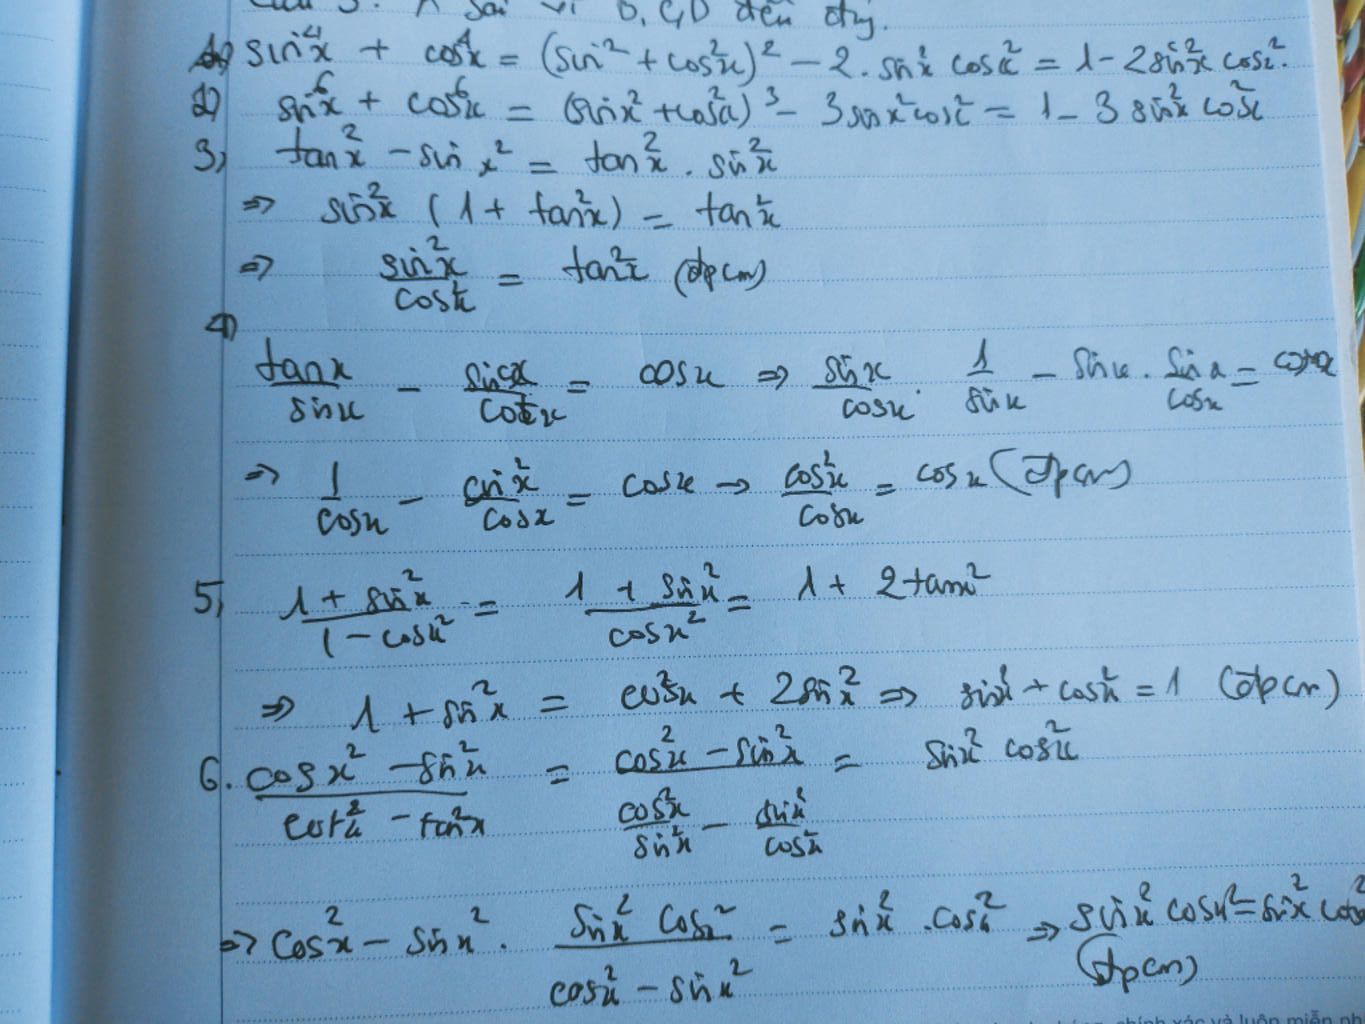 Câu 3: A sai vì B, C, D đều đúng.
1) sin⁴x + cos⁴x = (sin² + cos²x)² - 2. sin²x cos²x = 1 - 2sin²x cos²x.
2) sin⁶x + cos⁶x = (sin x² + cos²x)³ - 3sin x² cos² = 1 - 3 sin²x cos²x
3, tan²x - sin x² = tan²x . sin²x
⇒ sin²x (1 + tan²x) = tan²x
⇒ sin²x / cos²x = tan²x (đpcm)
4)
tan x / sin x - sin x / cot x = cos x ⇒ sin x / cos x . 1 / sin x - sin x . sin x / cos x = cos x
⇒ 1 / cos x - sin²x / cos x = cos x → cos²x / cos x = cos x (đpcm)
5, 1 + sin²x / 1 - cos x² = 1 + sin x² / cos x² = 1 + 2 tan x²
⇒ 1 + sin²x = cos²x + 2 sin²x ⇒ sin²x + cos²x = 1 (đpcm)
6. cos x² - sin²x / cot²x - tan²x = cos²x - sin²x / cos²x / sin²x - sin²x / cos²x = sin x² cos²x
⇒ cos²x - sin x² . sin²x cos x² / cos²x - sin x² = sin²x . cos²x ⇒ sin²x cos x² = sin²x cos²
(đpcm)
chính xác và luôn miễn ph